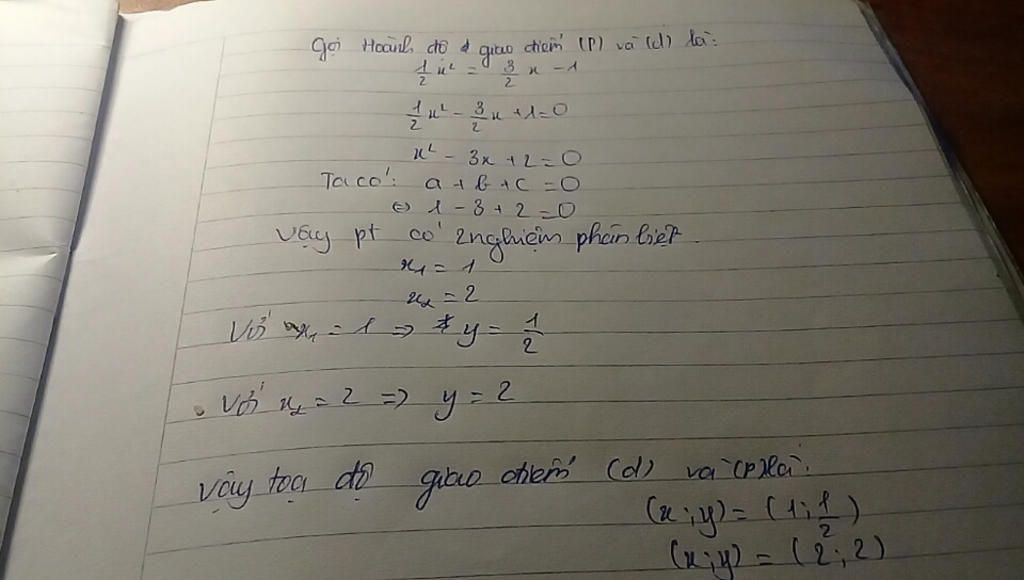 Gọi Hoành độ giao điểm (P) và (d) là:
1/2 x² = 3/2 x - 1
1/2 x² - 3/2 x + 1 = 0
x² - 3x + 2 = 0
Ta có: a + b + c = 0
⇔ 1 - 3 + 2 = 0
Vậy pt có 2 nghiệm phân biệt.
x₁ = 1
x₂ = 2
Với x₁ = 1 ⇒ y = 1/2
Với x₂ = 2 ⇒ y = 2
Vậy tọa độ giao điểm (d) và (P) là:
(x;y) = (1; 1/2)
(x;y) = (2; 2)